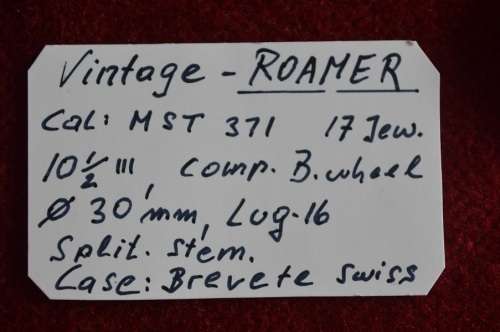 Vintage - ROAMER
Cal: MST 371 17 Jew.
10 1/2 ''', Comp. B. wheel
Ø 30 mm, Lug-16
Split. stem.
Case: Brevete swiss